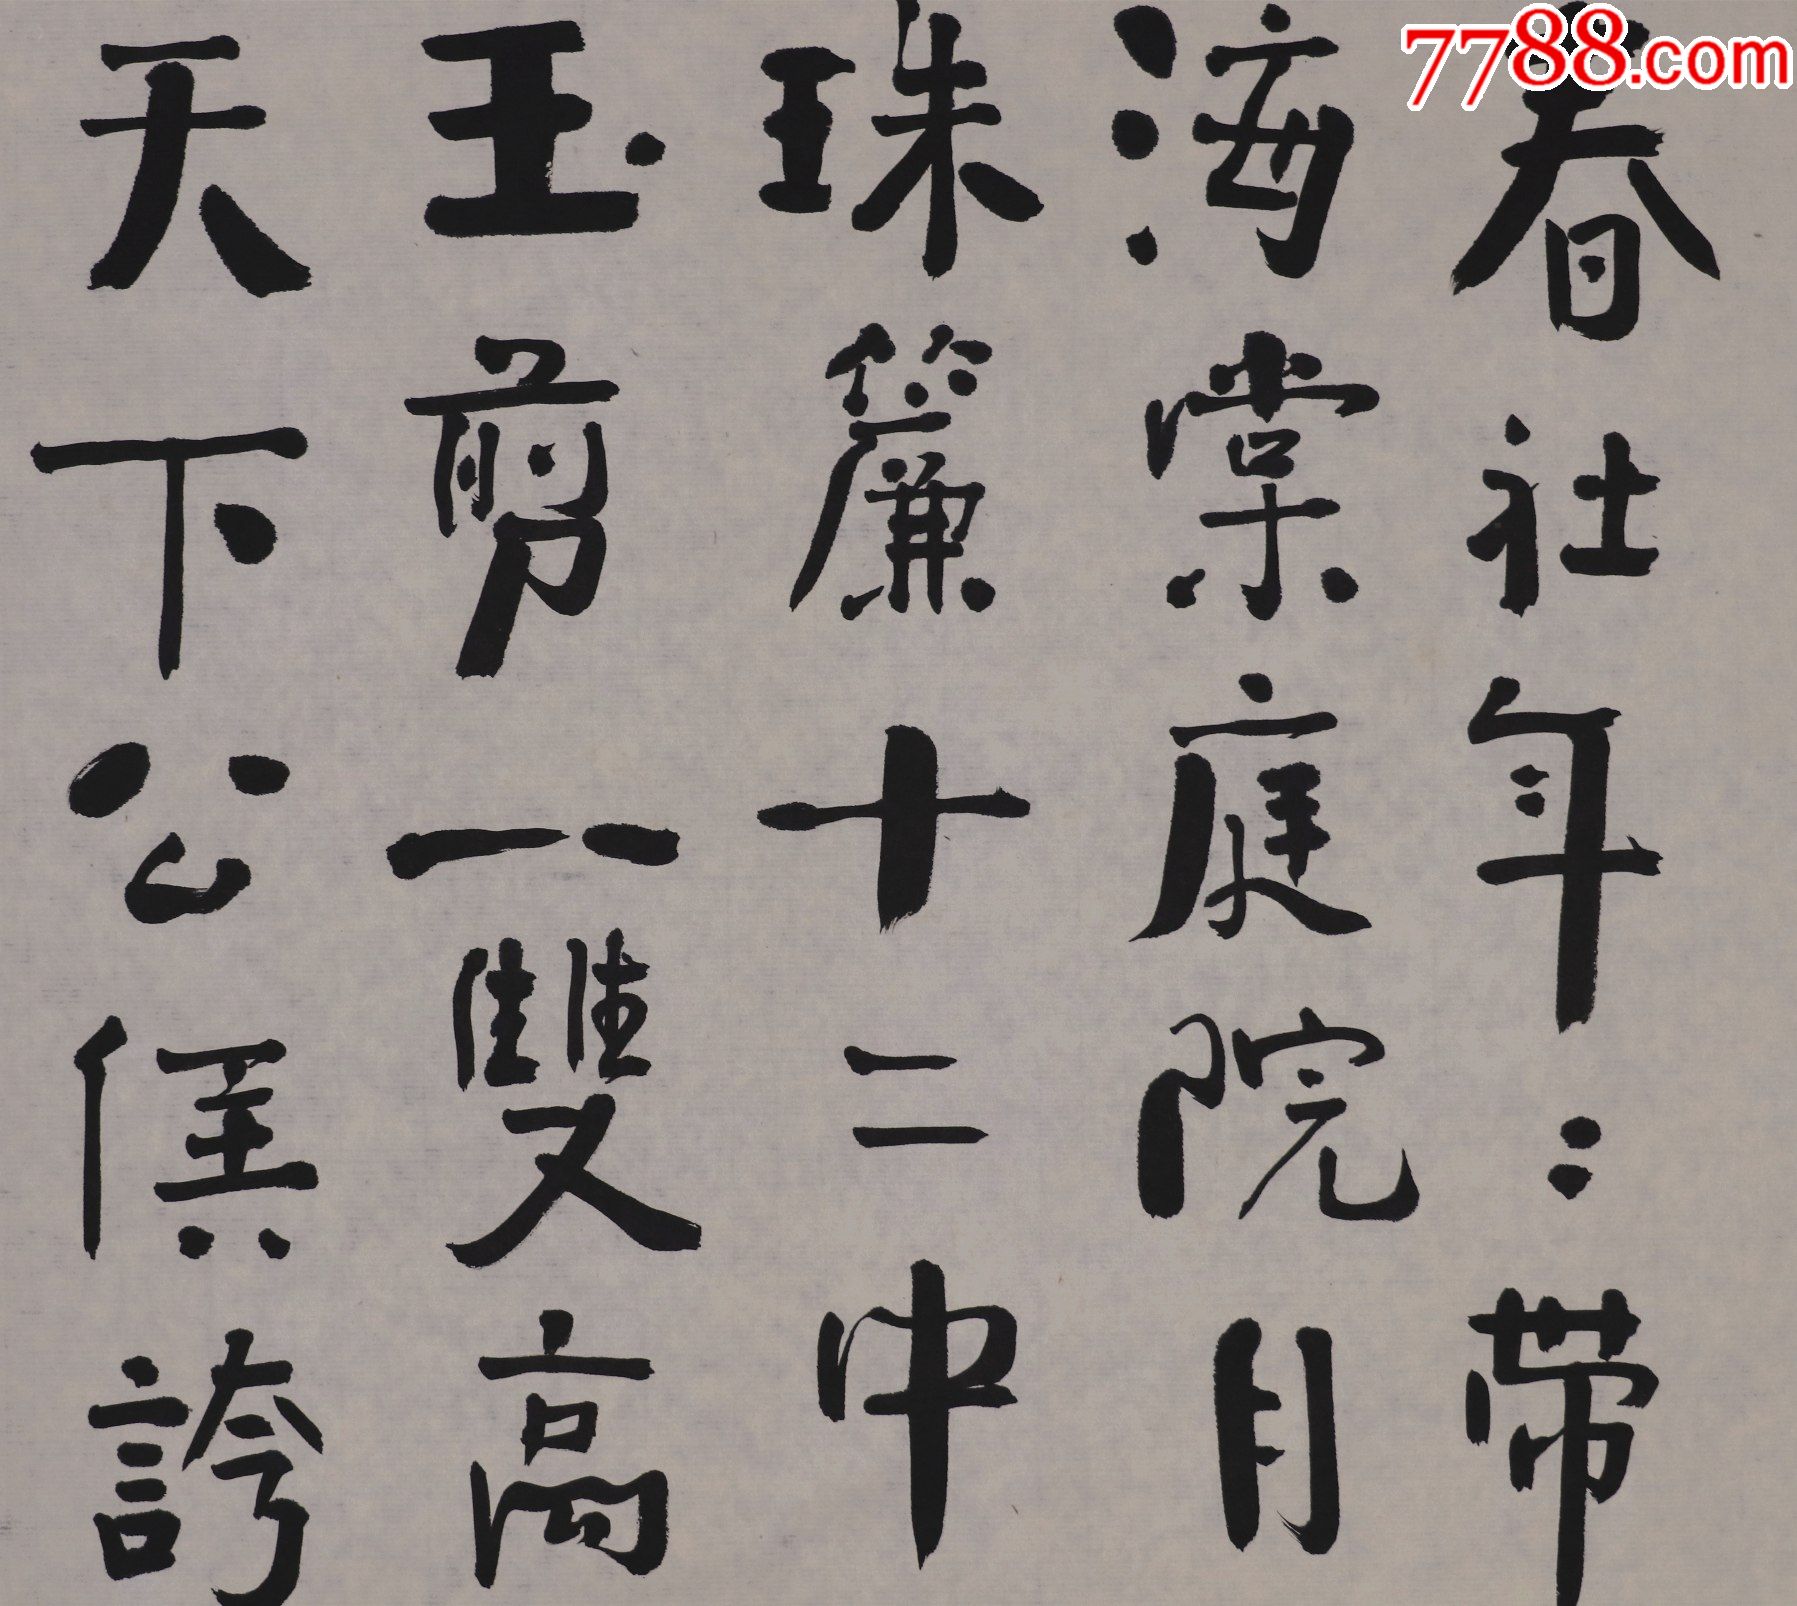 春社年々帶
海棠庭院月
珠簾十二中
玉剪一雙高
天下公侯誇
7788.com